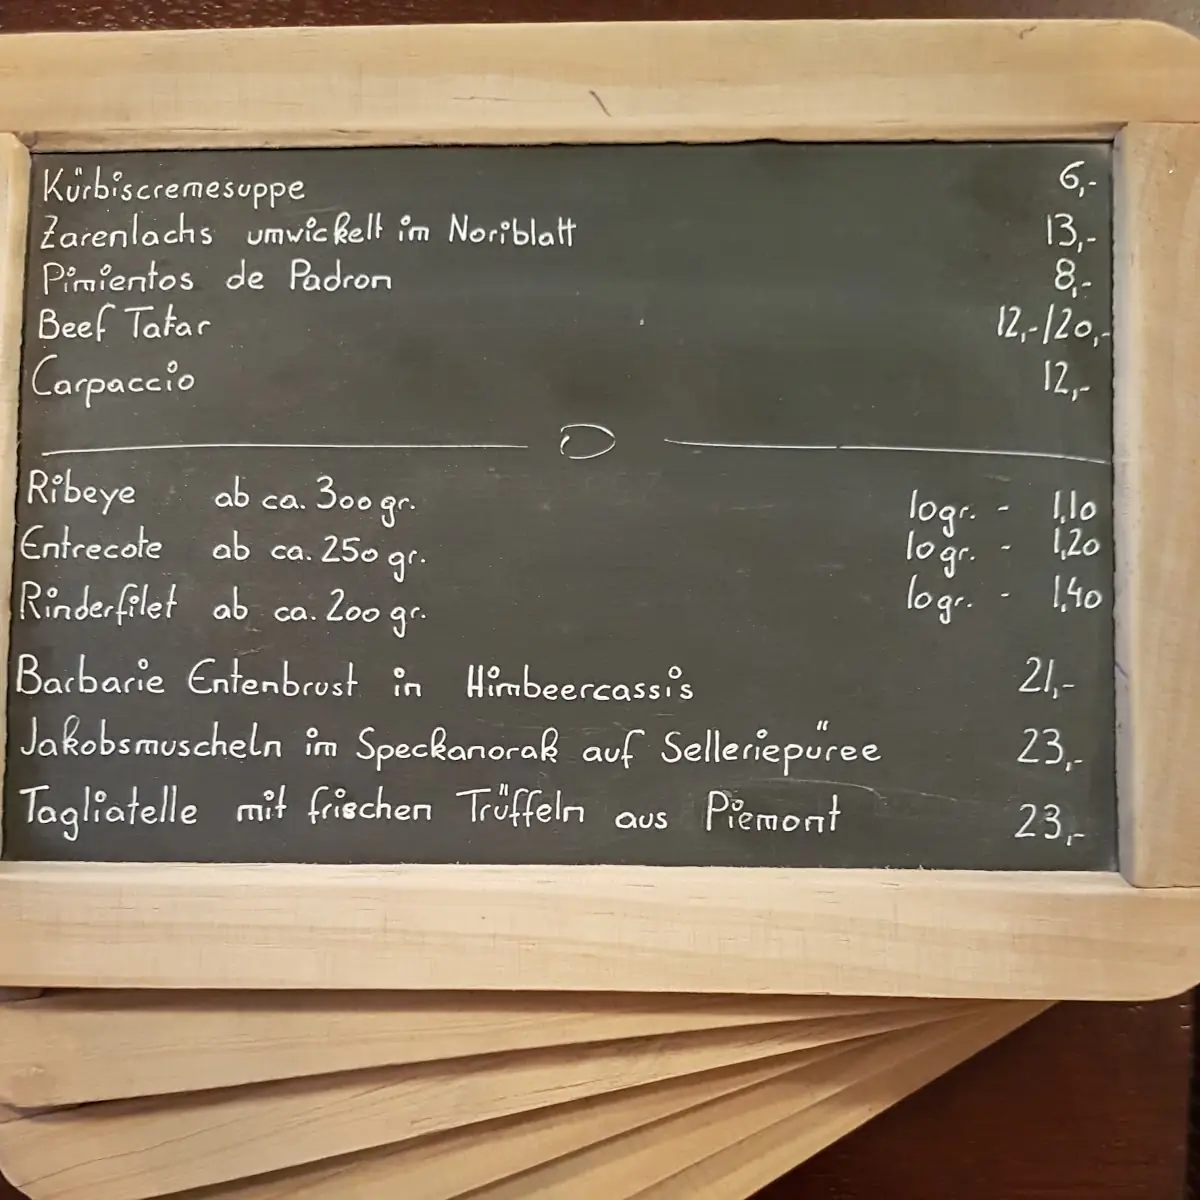 Kürbiscremesuppe 6,-
Zarenlachs umwickelt im Noriblatt 13,-
Pimientos de Padron 8,-
Beef Tatar 12,-/20,-
Carpaccio 12,-
Ribeye ab ca. 300 gr. 10gr. - 1,10
Entrecote ab ca. 250 gr. 10gr. - 1,20
Rinderfilet ab ca. 200 gr. 10gr. - 1,40
Barbarie Entenbrust in Himbeercassis 21,-
Jakobsmuscheln im Speckanorak auf Selleriepüree 23,-
Tagliatelle mit frischen Trüffeln aus Piemont 23,-